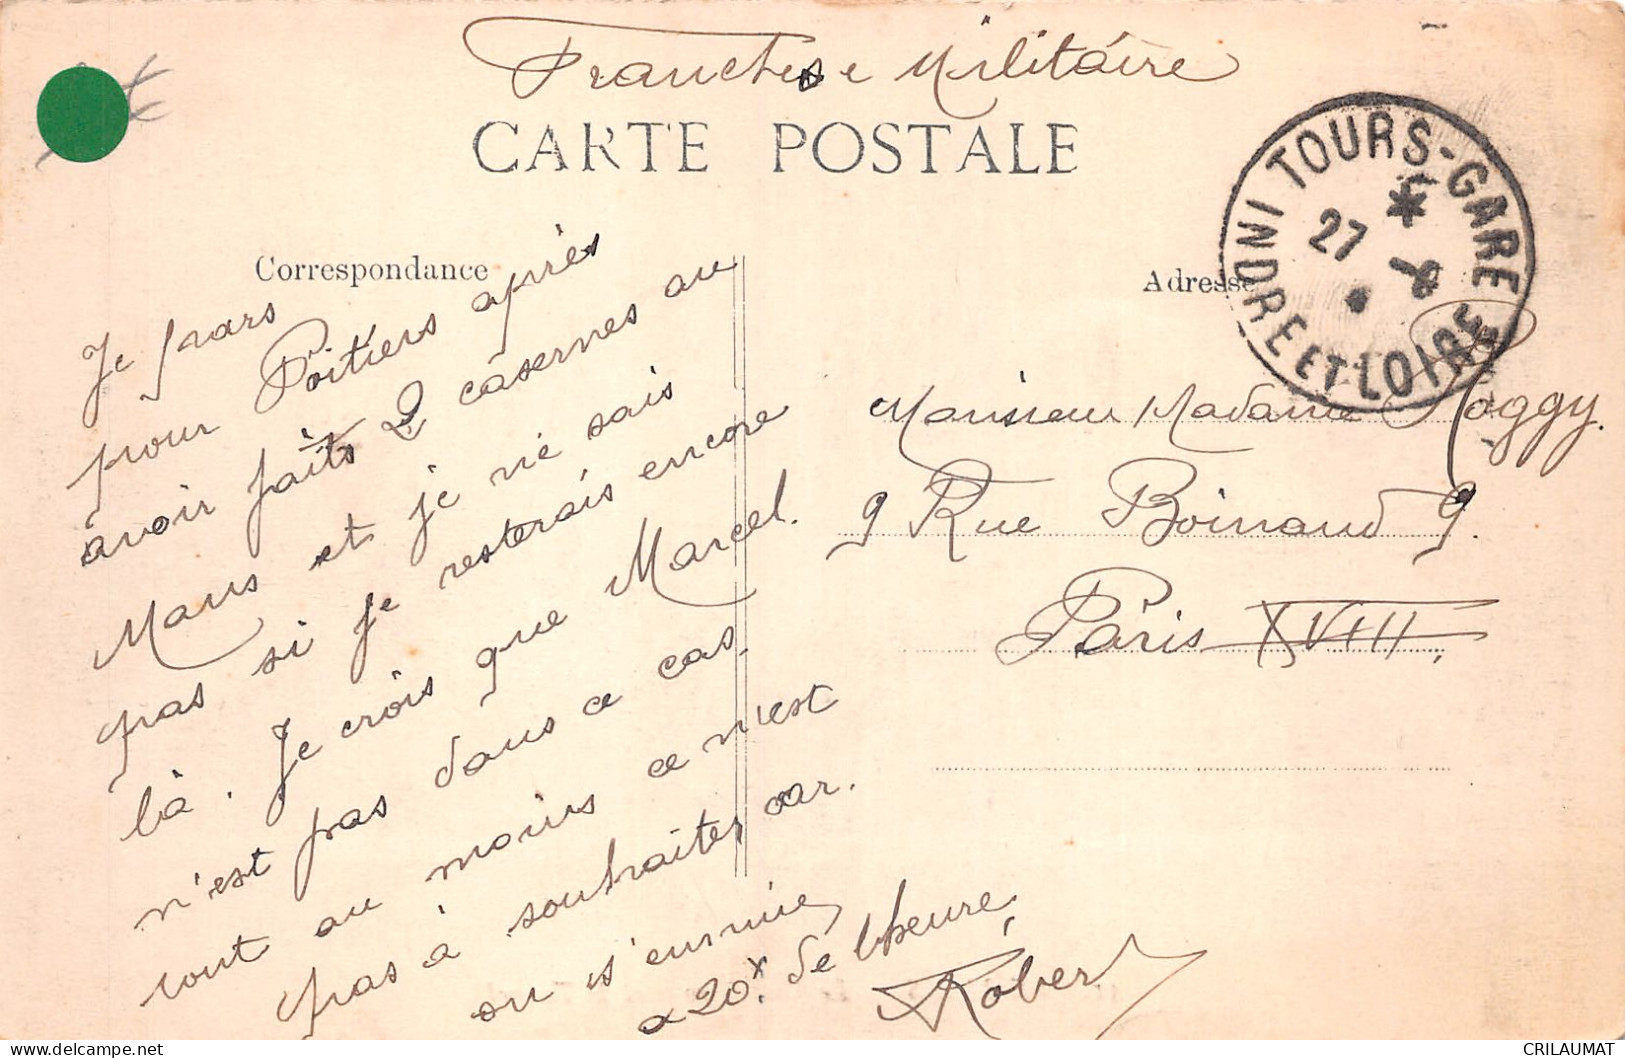 Franchise Militaire
CARTE POSTALE
TOURS-GARE
27
INDRE ET LOIRE
Correspondance
Adresse
Je pars
pour Poitiers après
avoir faits 2 casernes au
Mans et je ne sais
pas si je resterais encore
là. Je crois que Marcel.
n'est pas dans ce cas.
tout au moins ce n'est
pas à souhaiter car.
on s'ennuie,
a 20x. de l'heure,
Robert
Monsieur Madame Roggy.
9 Rue Boinaud 9.
Paris XVIII,
delcampe.net
CRILAUMAT